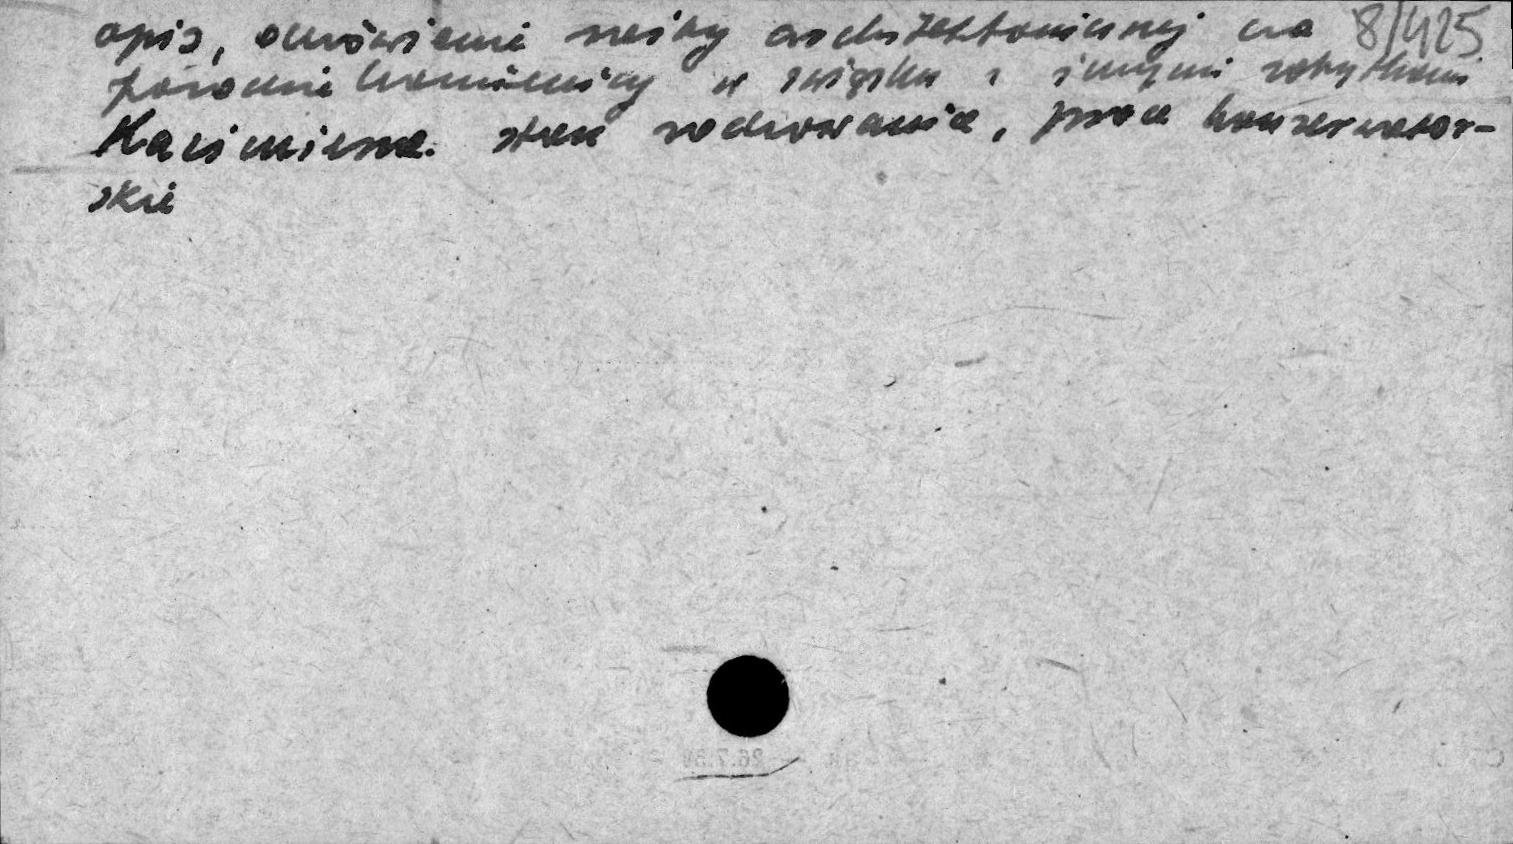 8/425
opis, omówienie rzeźby architektonicznej na
poziomie kamienicy w związku z innymi zabytkami
Kazimierza. stan zachowania, prace konserwator-
skie